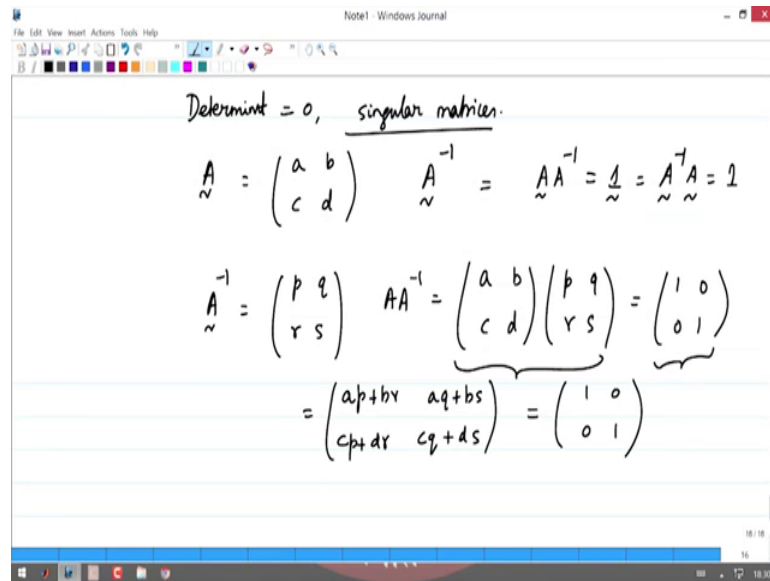 Note1 - Windows Journal
File Edit View Insert Actions Tools Help
B I
Determint = 0, singular matrices.
A = ( a b ) A^-1 = A A^-1 = 1 = A^-1 A = 1
( c d )
A^-1 = ( p q ) AA^-1 = ( a b ) ( p q ) = ( 1 0 )
( r s ) ( c d ) ( r s ) ( 0 1 )
= ( ap+br aq+bs ) = ( 1 0 )
( cp+dr cq+ds ) ( 0 1 )
18/18
16
18:30